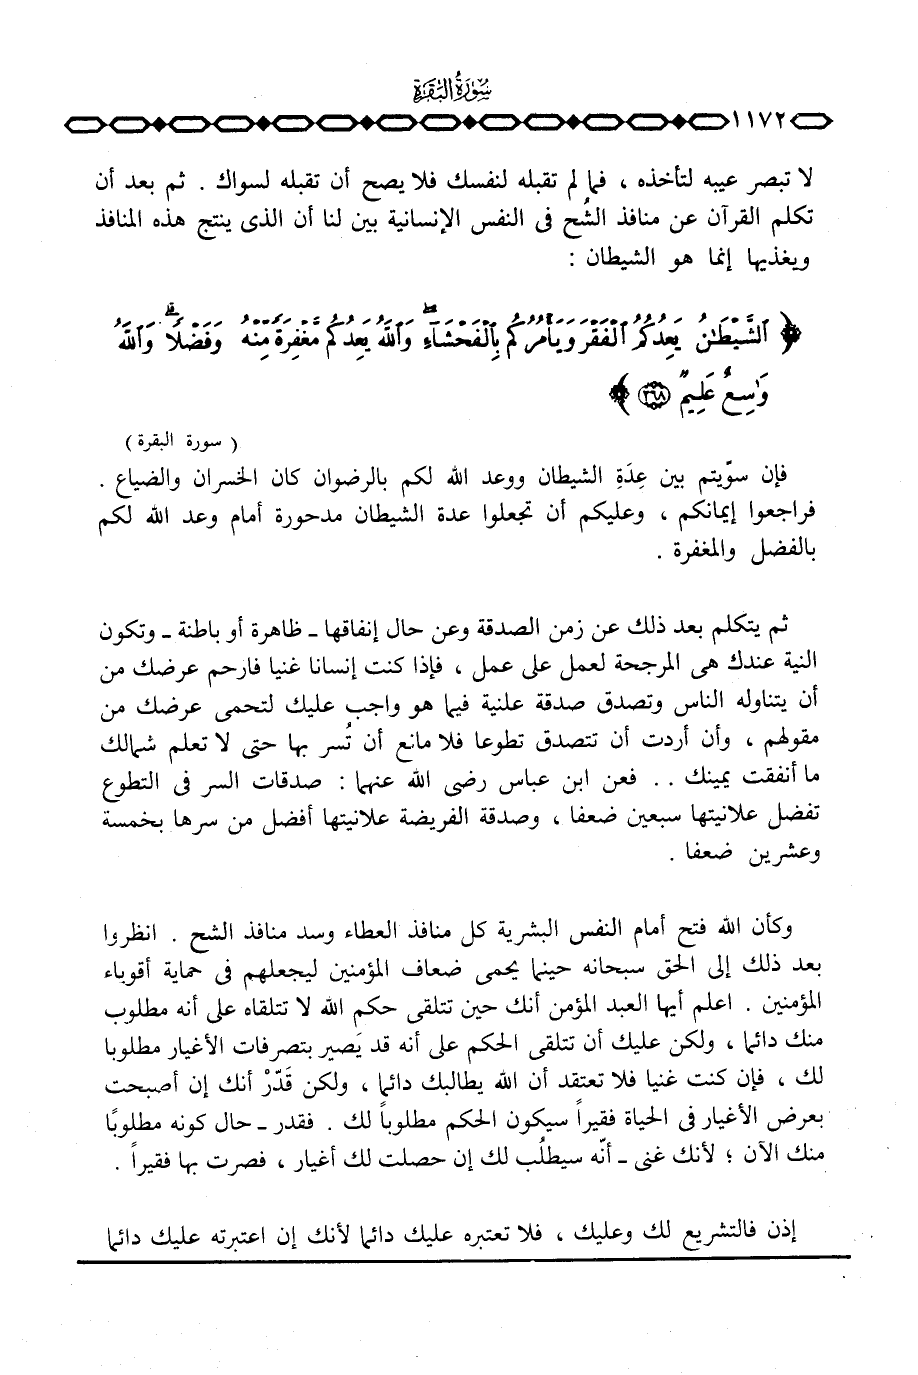 سورة البقرة
١١٧٢
لا تبصر عيبه لتأخذه ، فما لم تقبله لنفسك فلا يصح أن تقبله لسواك . ثم بعد أن
تكلم القرآن عن منافذ الشُح فى النفس الإنسانية بين لنا أن الذى ينتج هذه المنافذ
ويغذيها إنما هو الشيطان :
﴿ ٱلشَّيْطَٰنُ يَعِدُكُمُ ٱلْفَقْرَ وَيَأْمُرُكُم بِٱلْفَحْشَآءِ ۖ وَٱللَّهُ يَعِدُكُم مَّغْفِرَةً مِّنْهُ وَفَضْلًا ۗ وَٱللَّهُ
وَٰسِعٌ عَلِيمٌ ٢٦٨ ﴾
( سورة البقرة )
فإن سوّيتم بين عِدَةِ الشيطان ووعد الله لكم بالرضوان كان الخسران والضياع .
فراجعوا إيمانكم ، وعليكم أن تجعلوا عدة الشيطان مدحورة أمام وعد الله لكم
بالفضل والمغفرة .
ثم يتكلم بعد ذلك عن زمن الصدقة وعن حال إنفاقها ـ ظاهرة أو باطنة ـ وتكون
النية عندك هى المرجحة لعمل على عمل ، فإذا كنت إنسانا غنيا فارحم عرضك من
أن يتناوله الناس وتصدق صدقة علنية فيما هو واجب عليك لتحمى عرضك من
مقولهم ، وأن أردت أن تتصدق تطوعا فلا مانع أن تُسر بها حتى لا تعلم شمالك
ما أنفقت يمينك . . فعن ابن عباس رضى الله عنهما : صدقات السر فى التطوع
تفضل علانيتها سبعين ضعفا ، وصدقة الفريضة علانيتها أفضل من سرها بخمسة
وعشرين ضعفا .
وكأن الله فتح أمام النفس البشرية كل منافذ العطاء وسد منافذ الشح . انظروا
بعد ذلك إلى الحق سبحانه حينما يحمى ضعاف المؤمنين ليجعلهم فى حماية أقوياء
المؤمنين . اعلم أيها العبد المؤمن أنك حين تتلقى حكم الله لا تتلقاه على أنه مطلوب
منك دائما ، ولكن عليك أن تتلقى الحكم على أنه قد يَصير بتصرفات الأغيار مطلوبا
لك ، فإن كنت غنيا فلا تعتقد أن الله يطالبك دائما ، ولكن قَدّرْ أنك إن أصبحت
بعرض الأغيار فى الحياة فقيراً سيكون الحكم مطلوباً لك . فقدر ـ حال كونه مطلوبًا
منك الآن ؛ لأنك غنى ـ أنّه سيطلُب لك إن حصلت لك أغيار ، فصرت بها فقيراً .
إذن فالتشريع لك وعليك ، فلا تعتبره عليك دائما لأنك إن اعتبرته عليك دائما